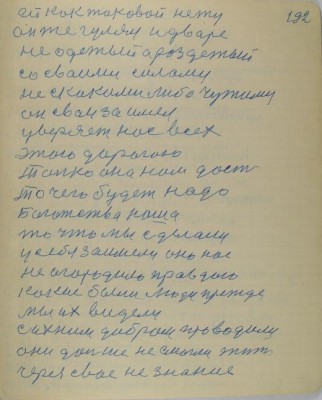 192
ей как таковой нету
он же гулял и дваре
не одетый а роздетый
со сваими силами
не скакими либо чужими
он сваи заимел
уверяет нас всех
этого дарогаю
толко она нам дост
то чего будет надо
Богатства наша
то что мы сделали
у себя заимели оно нас
не огородило правдаю
какие были люди прежде
мы их видели
сихним добром проводили
они дольше не смогли жить
через свае не знание